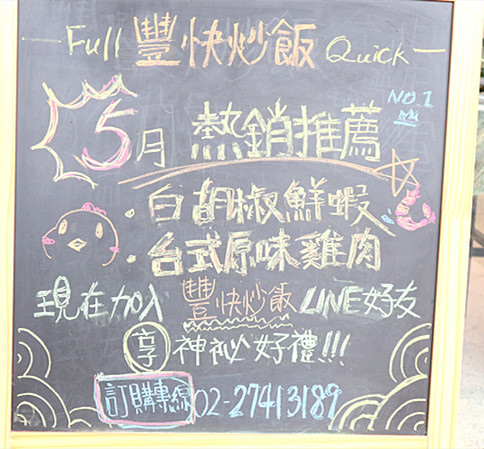 Full 豐快炒飯 Quick
NO.1
5月 熱銷推薦
·白胡椒鮮蝦
·台式原味雞肉
現在加入 豐快炒飯 LINE好友
享神祕好禮!!!
訂購專線 02-27413189